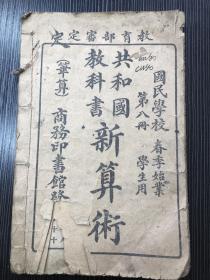 教育部審定
國民學校
春季始業
學生用
第八冊
共和國
教科書
新算術
(筆算)
商務印書館